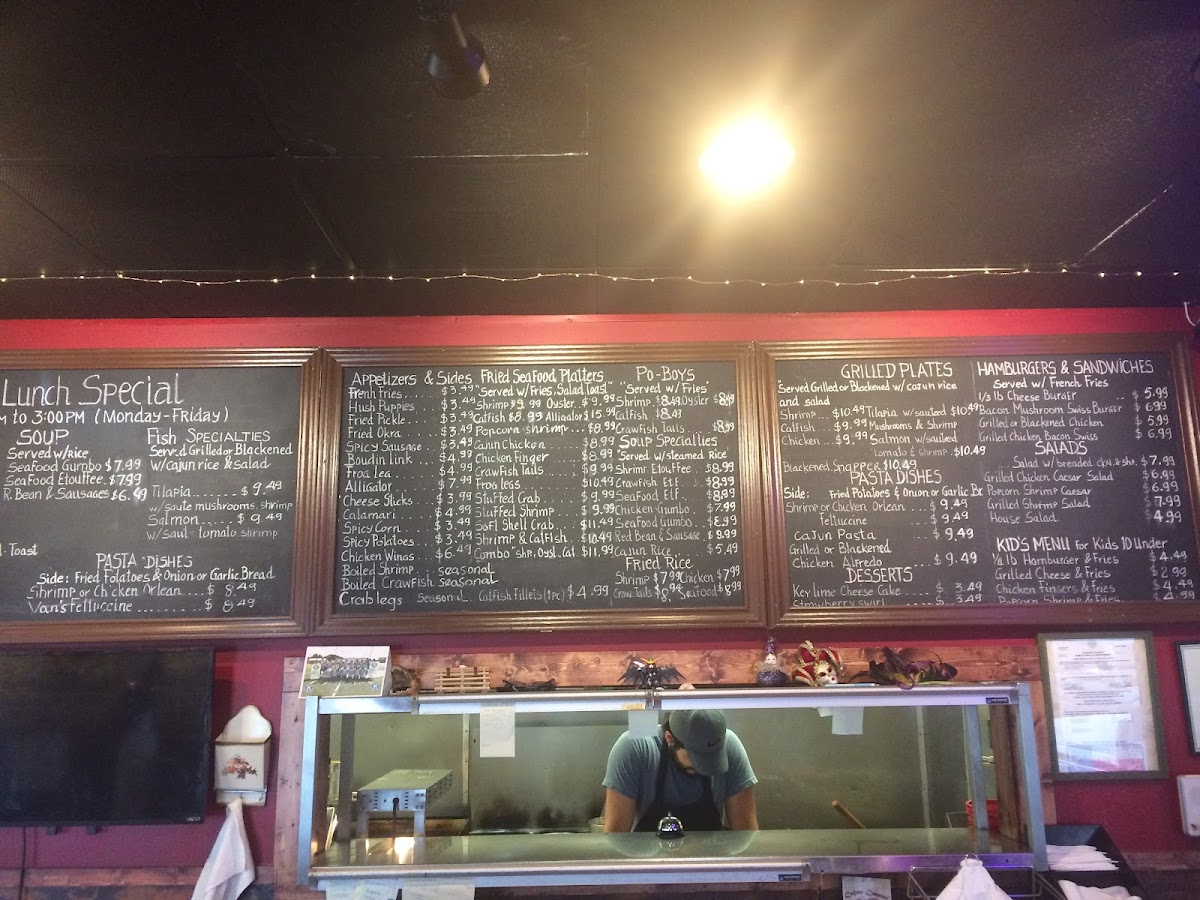 Lunch Special
to 3:00PM (Monday-Friday)
SOUP
Served w/rice
Seafood Gumbo $7.99
Seafood Etouffee $7.99
R.Bean & Sausages $6.49
Toast
Fish SPECIALTIES
Served Grilled or Blackened
w/cajun rice & salad
Tilapia ........ $9.49
w/saute mushrooms, shrimp
Salmon .... $9.49
w/saute tomato, shrimp
PASTA DISHES
Side: Fried Potatoes & Onion or Garlic Bread
Shrimp or Chicken Orlean .... $8.49
Van's Fettuccine ........... $8.49
Appetizers & Sides
Frenh Fries .... $3.49
Hush Puppies .... $3.49
Fried Pickle .... $3.99
Fried Okra ... $3.49
Spicy Sausage $3.49
Boudin Link ... $4.99
Frog leg $4.99
Alligator $7.99
Cheese Sticks $3.99
Calamari $4.99
Spicy Corn $3.49
Spicy Potatoes $3.49
Chicken Wings ... $6.49
Boiled Shrimp .. seasonal
Boiled Crawfish seasonal
Crab legs Seasonal
FRIED SEAFOOD PLATTERS
"Served w/Fries, Salad, Toast"
Shrimp $9.99 Oyster $9.99
Catfish $8.99 Alligator $15.99
Popcorn shrimp .... $8.99
Cajun Chicken $8.99
Chicken Finger $8.99
Crawfish Tails $9.99
Frog legs $10.49
Stuffed Crab $9.99
Stuffed Shrimp $9.99
Soft Shell Crab ... $11.49
Shrimp & Catfish .. $10.49
Combo "shr, Oyst, Cat $11.99
Catfish Fillets (1pc) $4.99
PO-BOYS
"Served w/ Fries"
Shrimp $8.49 Oyster $8.49
Catfish $8.49
Crawfish Tails $8.99
SOUP SPECIALTIES
"Served w/steamed Rice
Shrimp Etouffee $8.99
Crawfish Etf $8.99
Seafood Etf $8.99
Chicken Gumbo $7.99
Seafood Gumbo $8.99
Red Bean & Sausage $9.99
Cajun Rice $5.49
FRIED RICE
Shrimp $7.99 Chicken $7.99
Craw.Tails $8.99 Seafood $8.99
GRILLED PLATES
Served Grilled or Blackened w/ cajun rice
and salad
Shrimp .... $10.49 Tilapia w/sauted $10.49
Catfish .... $9.99 Mushrooms & Shrimp
Chicken ... $9.99 Salmon w/sauteed
tomato & shrimp .. $10.49
Blackened Snapper $10.49
PASTA DISHES
Side: Fried Potatoes & Onion or Garlic Br
Shrimp or Chicken Orlean .... $9.49
Fettuccine .... $9.49
Cajun Pasta $9.49
Grilled or Blackened
Chicken Alfredo .. $9.49
DESSERTS
Key lime Cheese Cake ... $3.49
Strawberry swirl ... $3.49
HAMBURGERS & SANDWICHES
Served w/ French Fries
1/3 lb Cheese Burger .. $5.99
Bacon Mushroom Swiss Burger $6.99
Grilled or Blackened Chicken $5.99
Grilled Chicken Bacon Swiss $6.99
SALADS
Salad w/ breaded ckn. & shr. $7.99
Grilled Chicken Caesar Salad $6.99
Popcorn Shrimp Caesar $6.99
Grilled Shrimp Salad $7.99
House Salad $4.99
KID'S MENU for Kids 10 Under
1/3 lb Hamburger & Fries $4.49
Grilled Cheese & Fries $2.99
Chicken Fingers & Fries $4.49
Popcorn Shrimp & Fries $4.99